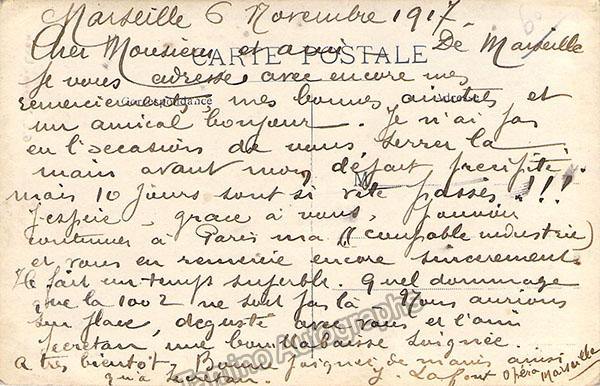 Marseille 6 Novembre 1917
Cher Monsieur et ami
CARTE POSTALE
De Marseille
Je vous adresse avec encore mes
remerciements mes bonnes amitiés et
Correspondance
Adresse
un amical bonjour. Je n'ai pas
eu l'occasion de vous serrer la
main avant mon départ précipité
mais 10 jours sont si vite passés!!!
J'espère, grace à vous, pouvoir
continuer à Paris ma (coupable industrie)
et vous en remercie encore sincèrement.
Il fait un temps superbe. Quel dommage
que la 1002 ne soit pas là. Nous aurions
sur place, dégusté avec vous et l'ami
Secretan, une bouillabaisse soignée.
A très bientôt. Bonne poignée de mains ainsi
qu'à Secretan. J. Lapont Opéra Marseille
Tamino Autographs